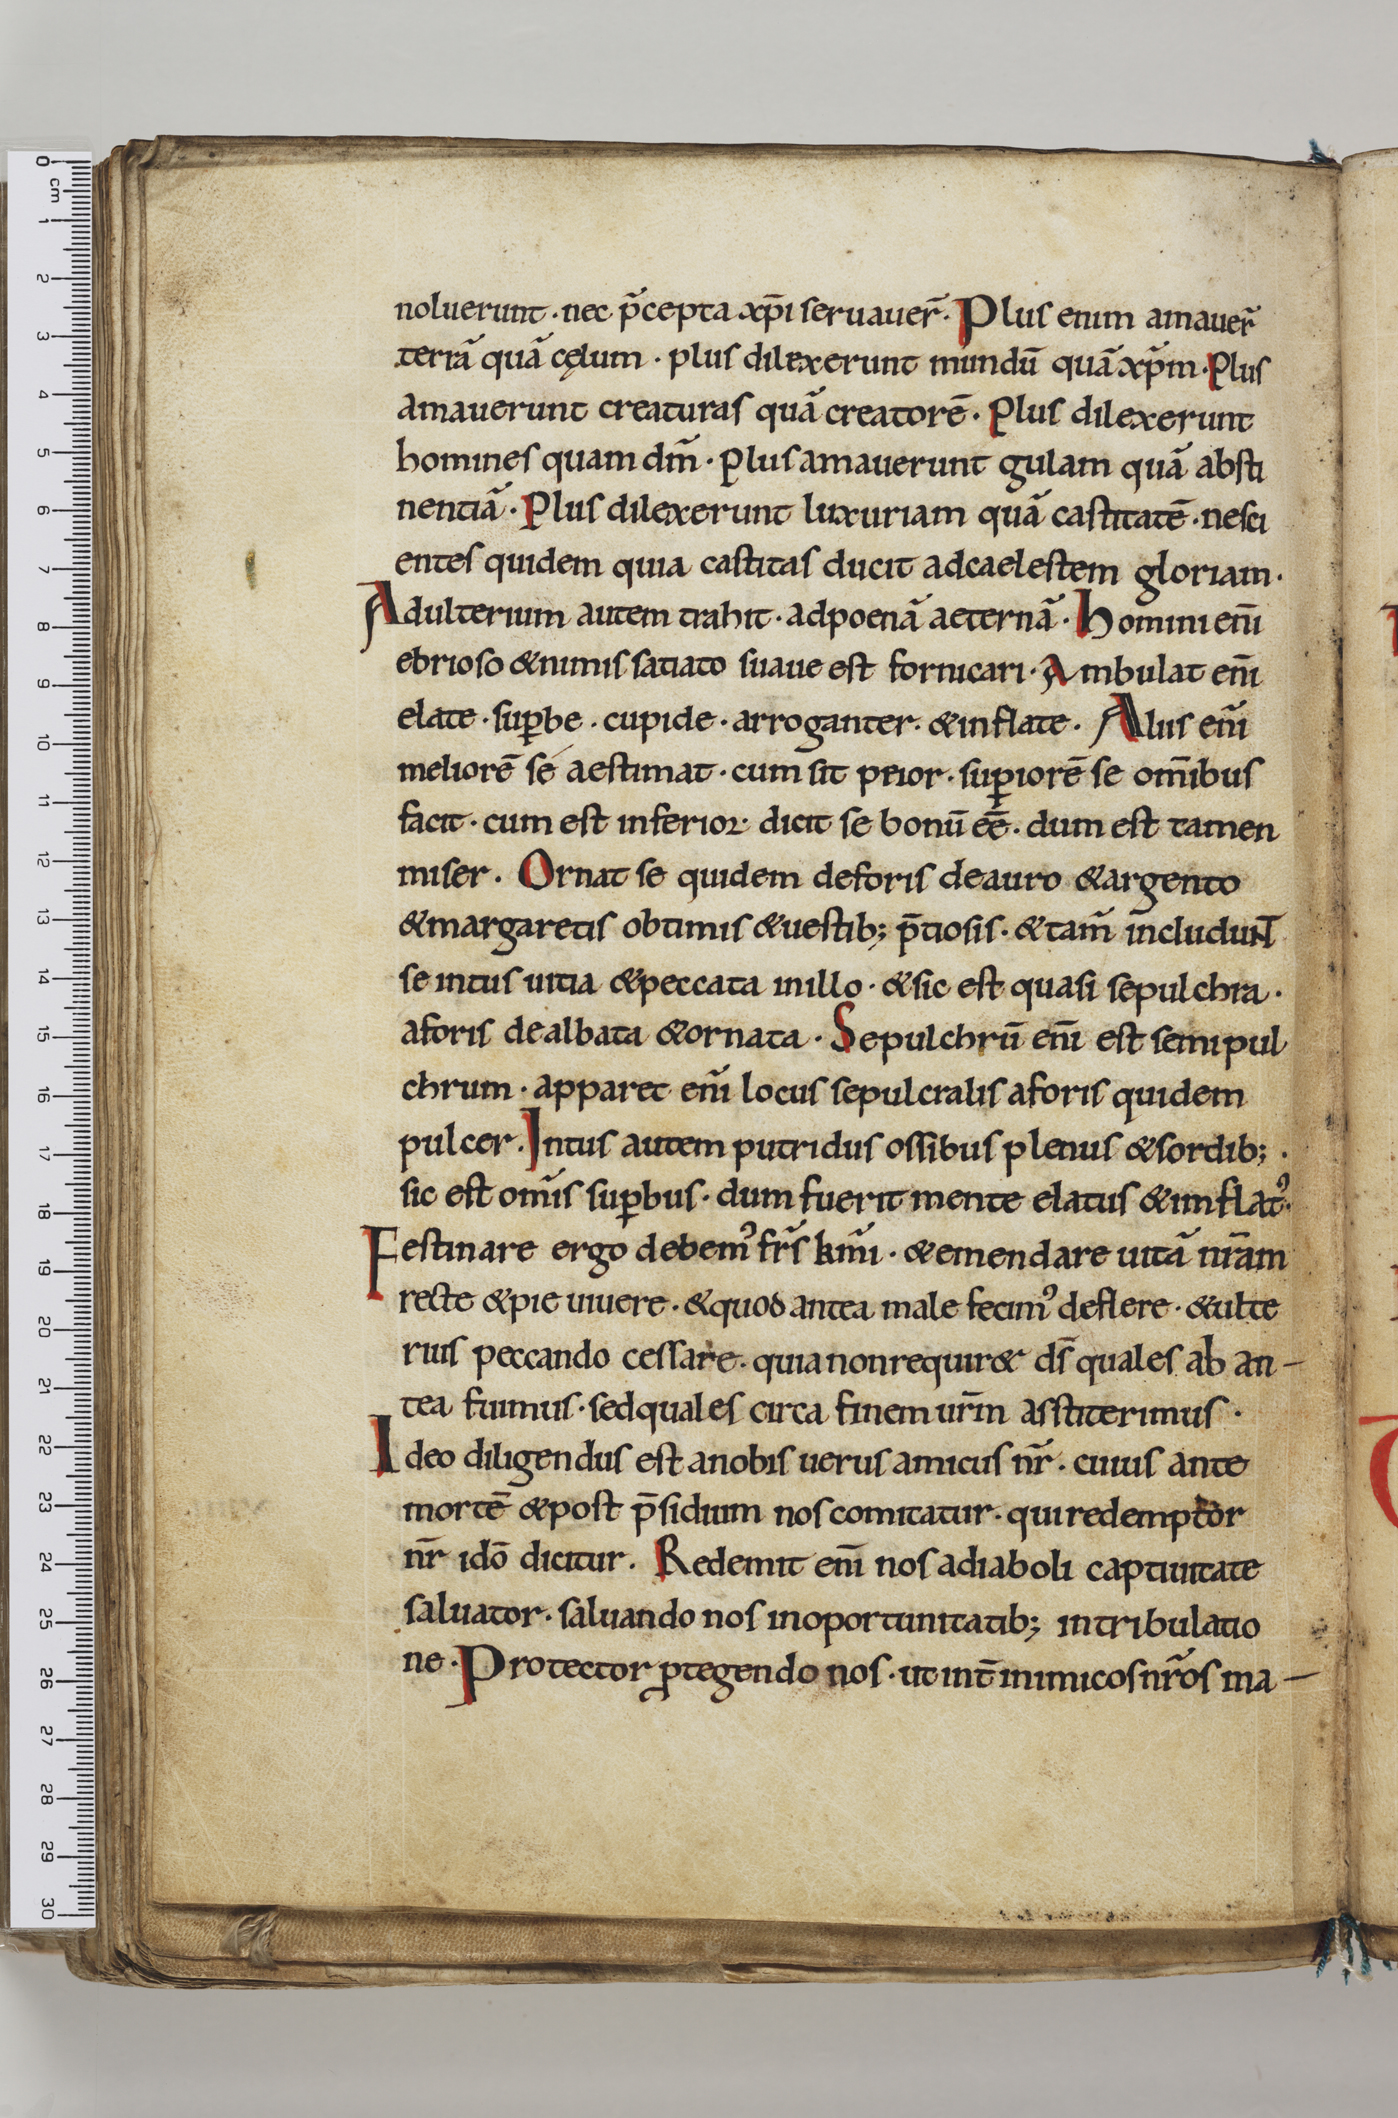 noluerunt · nec p̄cepta xp̄i seruauer̄ · Plus enim amauer̄
terrā quā cęlum · plus dilexerunt mundū quā xp̄m · Plus
amauerunt creaturas quā creatorē · Plus dilexerunt
homines quam dm̄ · Plus amauerunt gulam quā absti
nentiā · Plus dilexerunt luxuriam quā castitatē · nesci
entes quidem quia castitas ducit adcaelestem gloriam ·
Adulterium autem trahit · adpoenā aeternā · Homini eni̅
ebrioso &nimis satiato suaue est fornicari · Ambulat eni̅
elate · sup̱be · cupide · arroganter · &inflate · Alus eni̅
meliorē sé aestimat · cum sit peior · sup̱iorē se om̄ibus
facit · cum est inferior · dicit se bonū eē · dum est tamen
miser · Ornat se quidem deforis deauro &argento
&margaretis obtimis &uestib; p̄tiosis · &tam̄ includuNT
se intus uitia &peccata inillo · &sic est quasi sepulchra ·
aforis dealbata &ornata · Sepulchrū eni̅ est semipul
chrum · apparet eni̅ locus sepulcralis aforis quidem
pulcer · Intus autem putridus ossibus plenus &sordib; ·
sic est omi̅s sup̱bus · dum fuerit mente elatus &inflatꝰ ·
Festinare ergo debemꝰ fr̄s kmi̅ · &emendare uitā nr̄am
recte &pie uiuere · &quod antea male fecimꝰ deflere · &ulte
rius peccando cessare · quia nonrequir& ds̄ quales ab an-
tea fuimus · sedquales circa finem ur̄m asstiterimus ·
Ideo diligendus est anobis uerus amicus nr̄ · cuius ante
mortē &post p̄sidium nos comitatur · qui redemptor
nr̄ idō dicitur · Redemit eni̅ nos adiaboli captiuitate
saluator · saluando nos inoportunitatib; intribulatio
ne · Protector ꝓtegendo nos · ut int̄ inimicos nr̄os ma-
0
cm
1
2
3
4
5
6
7
8
9
10
11
12
13
14
15
16
17
18
19
20
21
22
23
24
25
26
27
28
29
30